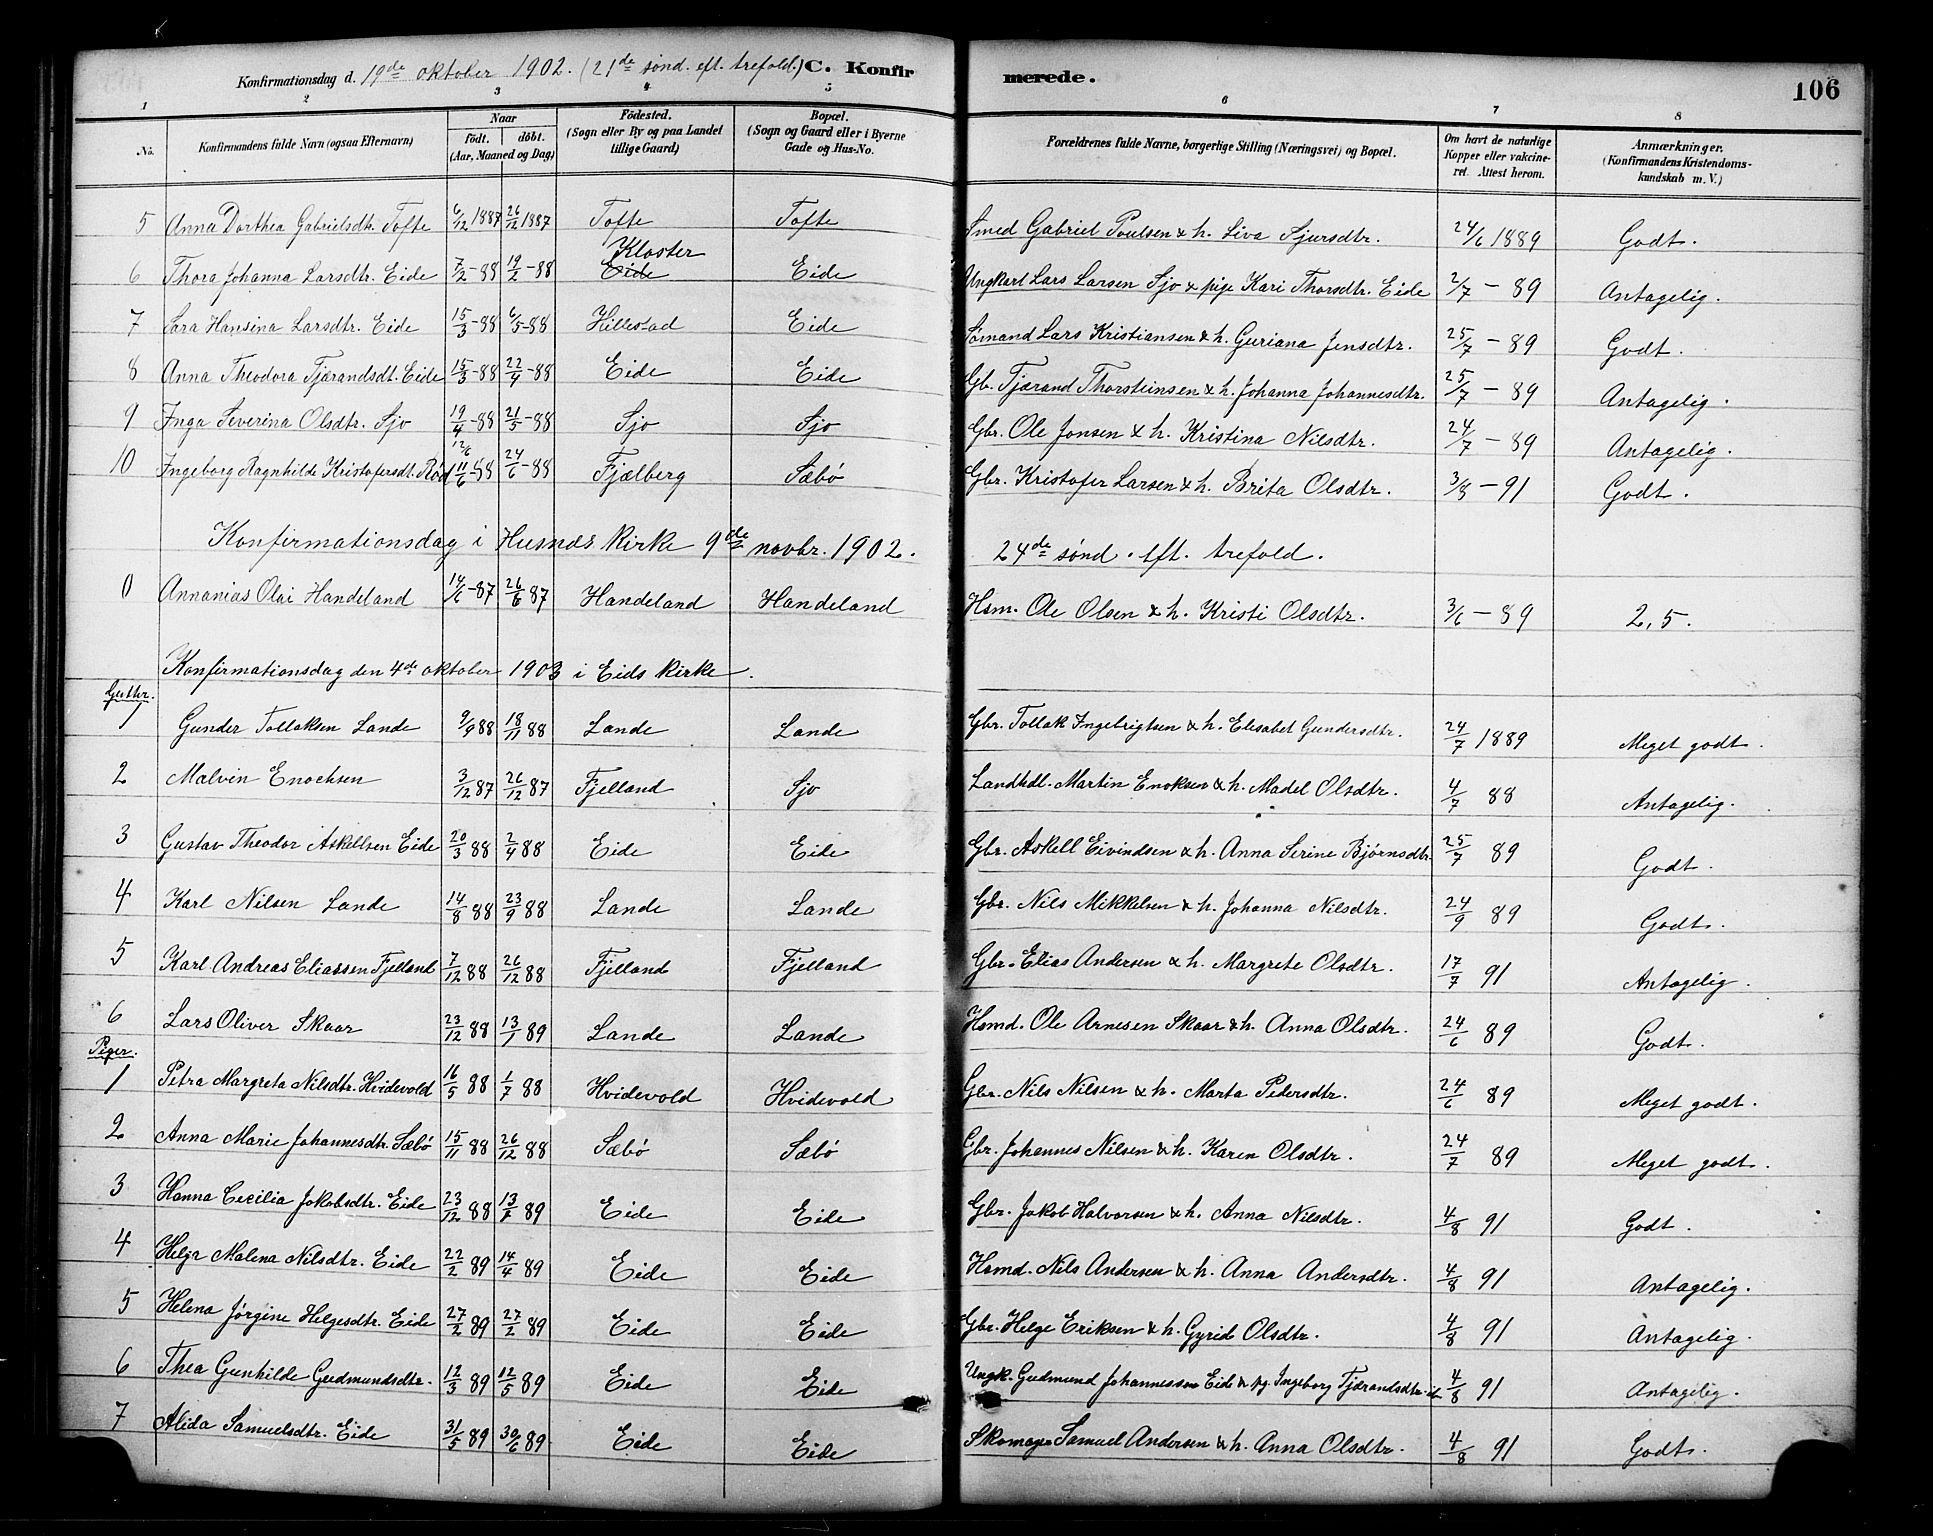 Konfirmationsdag d. 19de oktober 1902. (21de sønd. eft. trefold.) C. Konfir merede. 106
1 2 3 4 5 6 7 8
No. Konfirmandens fulde Navn (ogsaa Efternavn) Naar födt. döbt. (Aar, Maaned og Dag) Födested. (Sogn eller By og paa Landet tillige Gaard) Bopæl. (Sogn og Gaard eller i Byerne Gade og Hus-No. Forældrenes fulde Navne, borgerlige Stilling (Næringsvei) og Bopæl. Om havt de naturlige Kopper eller vakcineret. Attest herom. Anmærkninger. (Konfirmandens Kristendomskundskab m. V.)
5 Anna Dorthea Gabrielsdtr. Tofte 6/12 1887 26/12 1887 Tofte Tofte Smed Gabriel Poulsen & h. Siva Sjursdtr. 24/6 1889 Godt.
6 Thora Johanna Larsdtr. Eide 7/2-88 19/2-88 Kloster Eide Eide Ungkarl Lars Larsen Sjo & pige Kari Thorsdtr. Eide 2/7-89 Antagelig.
7 Sara Hansina Larsdtr. Eide 15/3-88 6/5-88 Hillestad Eide Sømand Lars Kristiansen & h. Guriana Jensdtr. 25/7-89 Godt.
8 Anna Theodora Tjærandsdt. Eide 15/3-88 22/4-88 Eide Eide Gb. Tjærand Thorsteinsen & h. Johanna Johannesdtr. 25/7-89 Antagelig.
9 Inga Severina Olsdtr. Sjo 19/4-88 21/5-88 Sjo Sjo Gbr. Ole Jonsen & h. Kristina Nilsdtr. 24/7-89 Antagelig.
10 Ingeborg Ragnhilde Kristofersdt. Rød 11/6-88 24/6-88 Fjælberg Sæbö Gbr. Kristofer Larsen & h. Brita Olsdtr. 3/8-91 Godt.
Konfirmationsdag i Husnæs Kirke 9de novbr. 1902. 24de sønd. eft. trefold.
0 Annanias Olai Handeland 14/6-87 26/6 87 Handeland Handeland Hsm. Ole Olsen & h. Kristi Olsdtr. 3/6-89 2,5.
Konfirmationsdag den 4de oktober 1903 i Eids Kirke.
Gutter.
1 Gunder Tollaksen Lande 9/9 88 18/11 88 Lande Lande Gbr. Tollak Ingebrigtsen & h. Elisabet Gundersdtr. 24/7 1889 Meget godt.
2 Malvin Enochsen 3/12 87 26/12 87 Fjelland Sjo Landhdl. Martin Enoksen & h. Madel Olsdtr. 4/7 88 Antagelig.
3 Gustav Theodor Askellsen Eide 20/3 88 2/4 88 Eide Eide Gbr. Askell Eivindsen & h. Anna Serine Bjørnsdtr. 25/7 89 Godt.
4 Karl Nilsen Lande 14/8 88 23/9 88 Lande Lande Gbr. Nils Mikkelsen & h. Johanna Nilsdtr. 24/9 89 Godt.
5 Karl Andreas Eliassen Fjelland 7/12 88 26/12 88 Fjelland Fjelland Gbr. Elias Andersen & h. Margrete Olsdtr. 17/7 91 Antagelig.
6 Lars Oliver Skaar 23/12 88 13/1 89 Lande Lande Hsmd. Ole Arnesen Skaar & h. Anna Olsdtr. 24/6 89 Godt.
Piger.
1 Petra Margreta Nilsdtr. Hvidevold 16/5 88 1/7 88 Hvidevold Hvidevold Gbr. Nils Nilsen & h. Marta Pedersdtr. 24/6 89 Meget godt.
2 Anna Marie Johannesdtr. Sæbö 15/11 88 26/12 88 Sæbö Sæbö Gbr. Johannes Nilsen & h. Karen Olsdtr. 24/7 89 Meget godt.
3 Hanna Cecilia Jakobsdtr. Eide 23/12 88 13/1 89 Eide Eide Gbr. Jakob Halvorsen & h. Anna Nilsdtr. 4/8 91 Godt.
4 Helga Malena Nilsdtr. Eide 22/2 89 14/4 89 Eide Eide Hsmd. Nils Andersen & h. Anna Andersdtr. 4/8 91 Antagelig.
5 Helena Jørgine Helgesdtr. Eide 27/2 89 27/2 89 Eide Eide Gbr. Helge Eriksen & h. Gyrid Olsdtr. 4/8 91 Antagelig.
6 Thea Gunhilde Gudmundsdtr. 12/3 89 12/5 89 Eide Eide Ungk. Gudmund Johannessen Eide & pg. Ingeborg Tjærandsdtr. 4/8 91 Antagelig.
7 Alida Samuelsdtr. Eide 31/5 89 30/6 89 Eide Eide Skomager Samuel Andersen & h. Anna Olsdtr. 4/8 91 Godt.